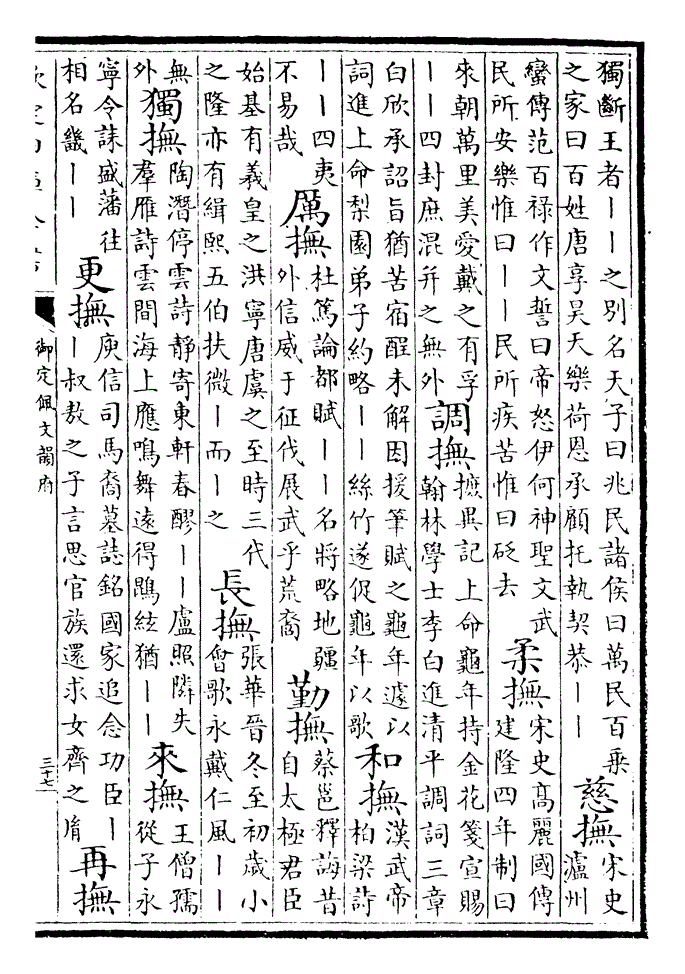 獨斷王者——之別名天子曰兆民諸侯曰萬民百乘
之家曰百姓唐享昊天樂荷恩承顧托執契恭——
慈撫
宋史
瀘州
蠻傳范百禄作文誓曰帝怒伊何神聖文武
民所安樂惟曰——民所疾苦惟曰砭去
柔撫
宋史髙麗國傳
建隆四年制曰
來朝萬里美愛戴之有孚
——四封庶混并之無外
調撫
摭異記上命龜年持金花箋宣賜
翰林學士李白進清平調詞三章
白欣承詔旨猶苦宿酲未解因援筆賦之龜年遽以
詞進上命梨園弟子約略——絲竹遂促龜年以歌
和撫
漢武帝
柏梁詩
——四夷
不易哉
厲撫
杜篤論都賦——名將略地疆
外信威于征伐展武乎荒裔
勤撫
蔡邕釋誨昔
自太極君臣
始基有羲皇之洪寧唐虞之至時三代
之隆亦有緝熙五伯扶微—而—之
長撫
張華晉冬至初歲小
會歌永戴仁風——
無
外
獨撫
陶潛停雲詩靜寄東軒春醪——盧照隣失
羣雁詩雲間海上應鳴舞遠得鵾絃猶——
來撫
王僧孺
從子永
寧令誄盛藩往
相名畿——
更撫
庾信司馬裔墓誌銘國家追念功臣—
—叔敖之子言思官族還求女齊之胤
再撫
欽定四庫全書
御定佩文韻府
三十七